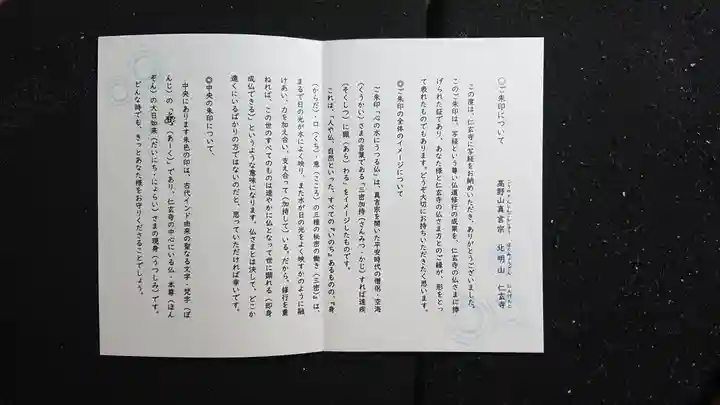 〇ご朱印について
高野山真言宗 北明山 仁玄寺
この度は、仁玄寺に写経をお納めいただき、ありがとうございました。
このご朱印は、写経という尊い仏道修行の成果を、仁玄寺の仏さまに捧
げられた証であり、あなた様と仁玄寺の仏さま方とのご縁が、形をとっ
て表れたものでもあります。どうぞ大切にお持ちいただきたく思います。
◎ご朱印の全体のイメージについて
ご朱印「心の水にうつる仏」は、真言宗を開いた平安時代の僧侶、空海
(くうかい)さまの言葉である「三密加持(さんみつ・かじ)すれば速疾
(そくしつ)に顕(あら)わる」をイメージしたものです。
これは、「人や仏、自然といった、すべての『いのち』あるものの、『身
(からだ)・口(くち)・意(こころ)の三種の秘密の働き(三密)』は、
まるで日の光が水によく映り、また水が日の光をよく映すかのように融
けあい、力を加え合い、支え合って(加持して)いる。だから、修行を重
ねれば、この世のすべてのものは速やかに仏となって世に顕れる(即身
成仏できる)」というような意味になります。仏さまとは決して、どこか
遠くにいるばかりの方ではないのだと、思っていただければ幸いです。
◎中央の朱印について、
中央にあります朱色の印は、古代インド由来の聖なる文字、梵字(ぼ
んじ)の「(あーく)」であり、仁玄寺の中心にいる仏・本尊(ほん
ぞん)の大日如来(だいにち・にょらい)さまの現身(うつしみ)です。
どんな時でも、きっとあなた様をお守りくださることでしょう。